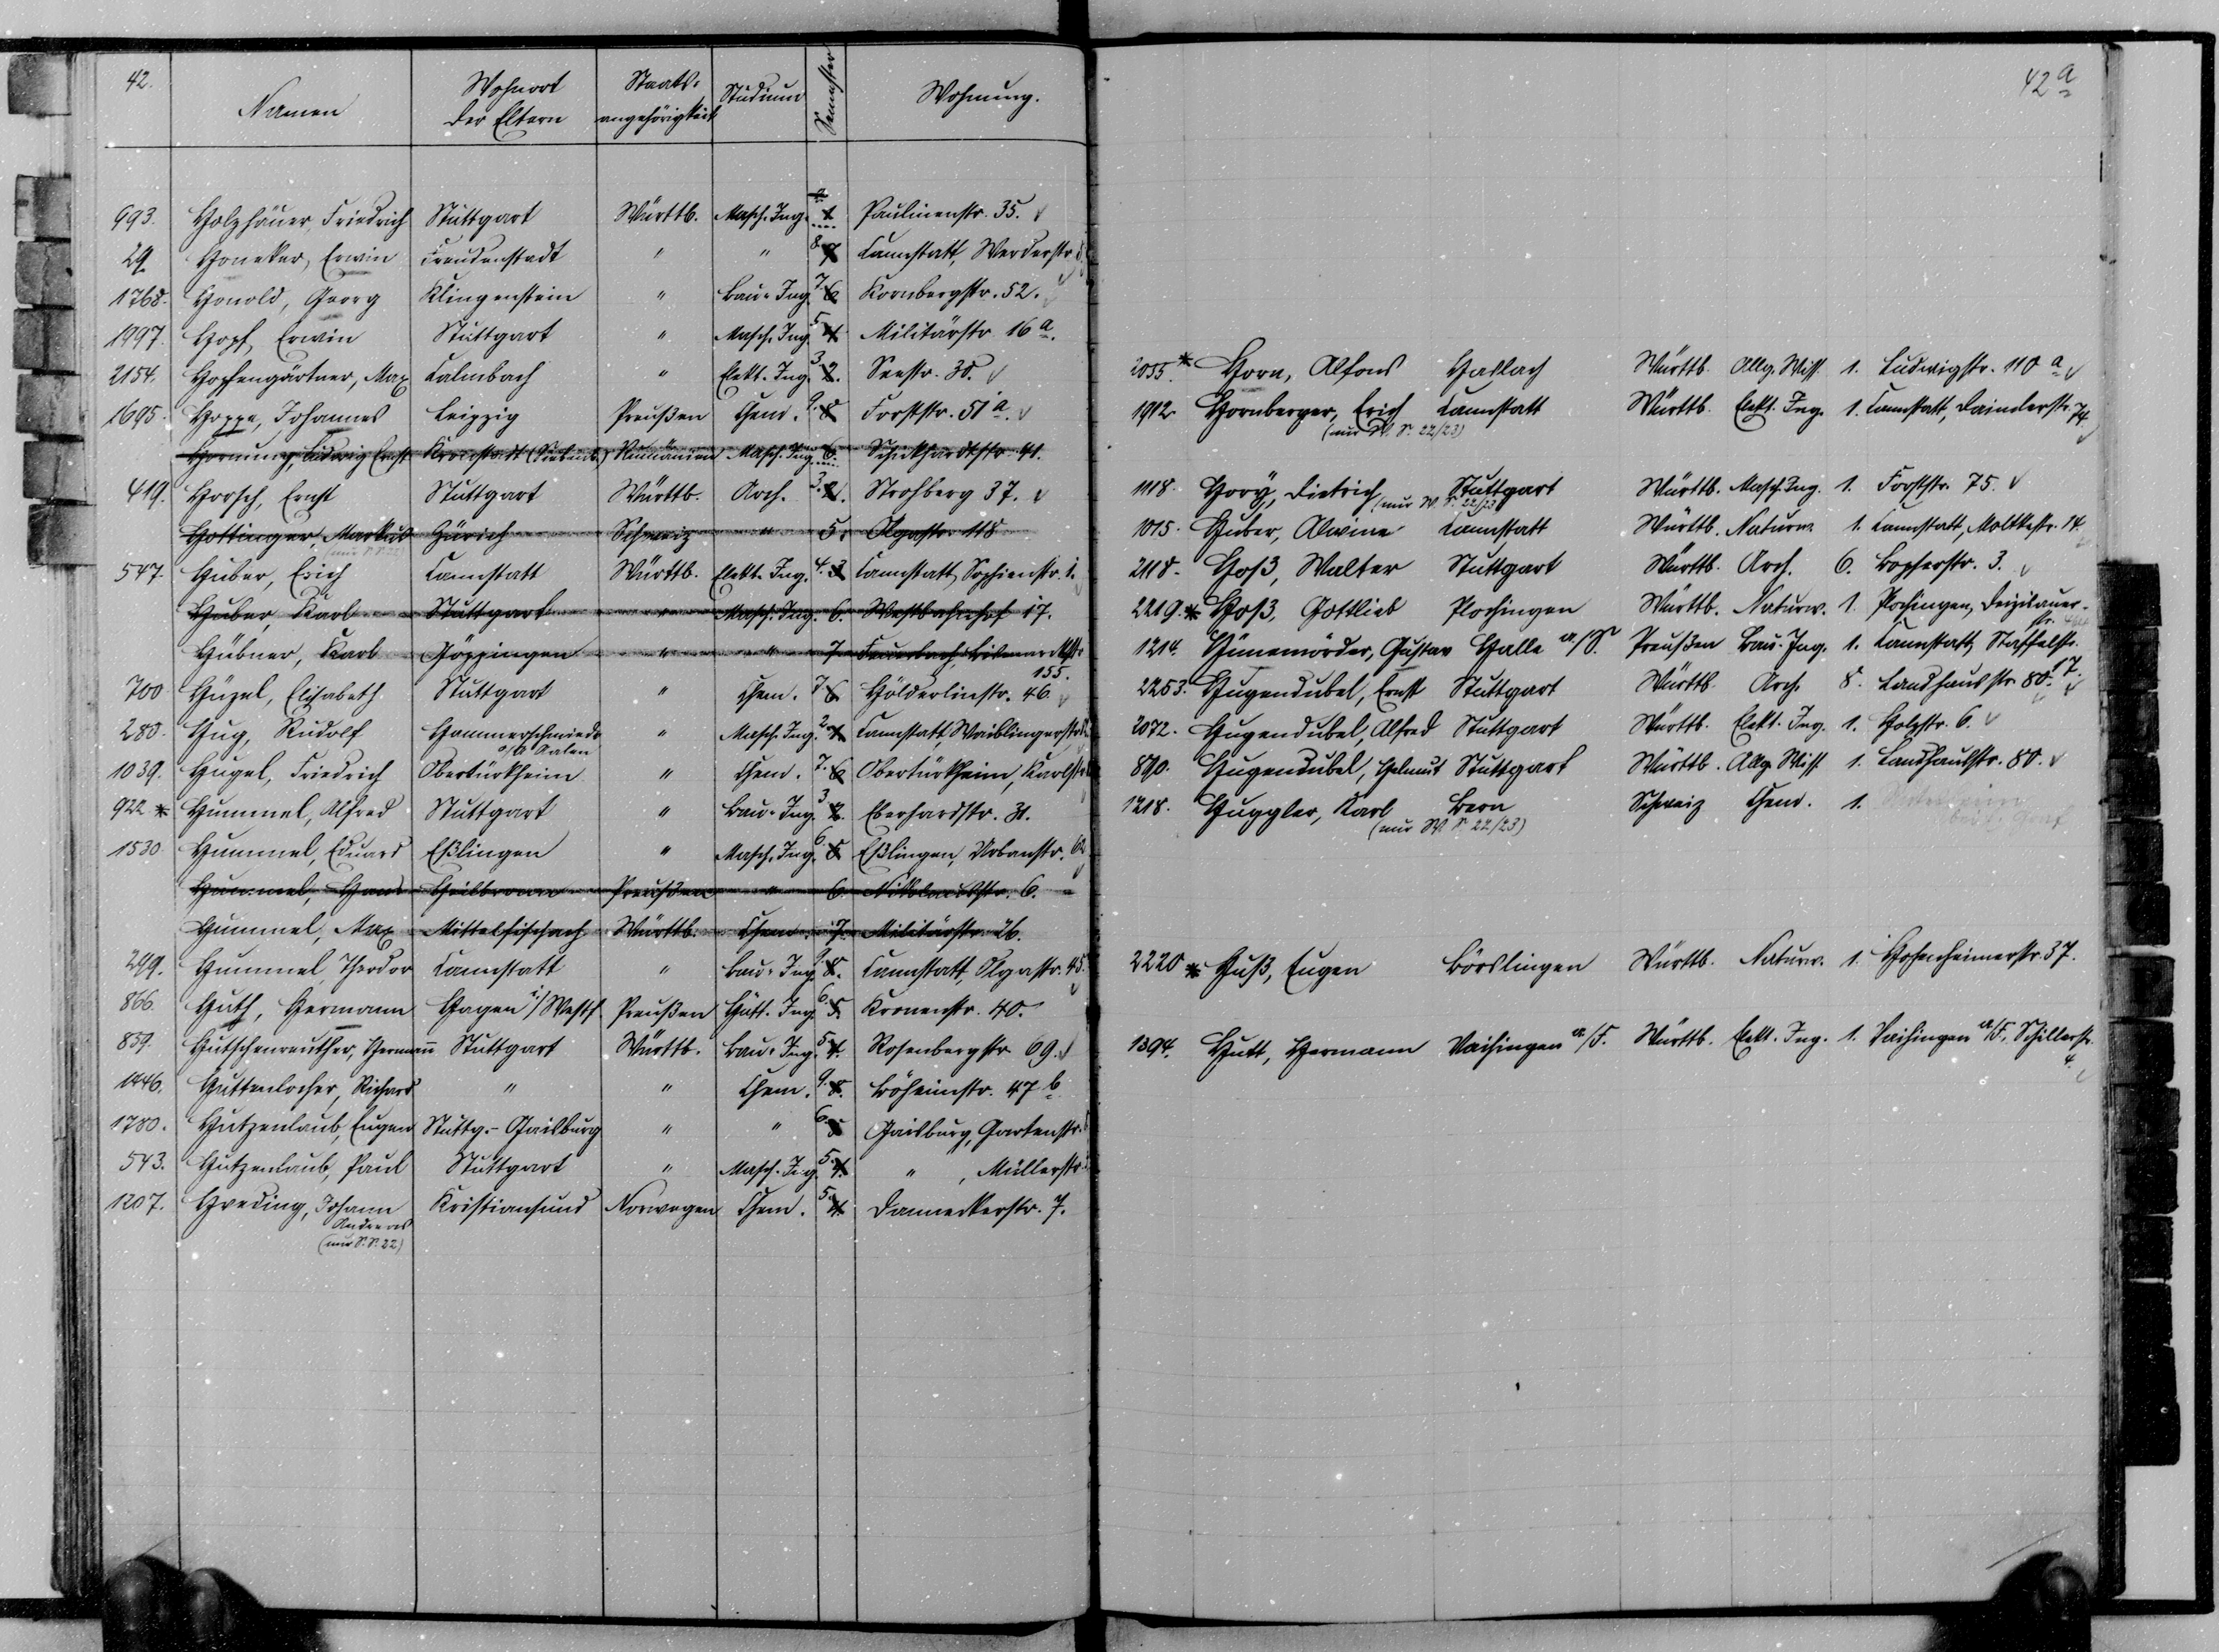 42.
Namen Wohnort der Eltern Staats-angehörigkeit Studium Semester Wohnung.
993. Holzhäuer, Friedrich Stuttgart Württb. Masch. Ing. Paulinenstr. 35.
29 Honeker, Erwin Freudenstadt " " 8. 7 Cannstatt, Werderstr.
1768. Honold, Georg Klingenstein " Bau-Ing. 7. 6 Kornbergstr. 52.
1997. Hopf, Erwin Stuttgart " Masch. Ing. 5 4 Militärstr. 16 a.
2154. Hopfengärtner, Max Calmbach " Elekt. Ing. 3. 2. Seestr. 30.
1695. Hoppe, Johannes Leipzig Preußen Chem. 9. 8 Forststr. 51 a.
Hornung, Ludwig Ernst Kronstadt (Siebenb.) Rumänien Masch. Ing. 6. Schickhardtstr. 41.
419. Horsch, Ernst Stuttgart Württb. Arch. 3. 2. Strohberg 37.
Hottinger, Markus Zürich Schweiz " 5. Olgastr. 118
547. Huber, Erich Cannstatt Württb. Elekt. Ing. 4. 3 Cannstatt, Sophienstr. 1.
Huber, Karl Stuttgart " Masch. Ing. 6. Westbahnhof 17.
Hübner, Karl Göppingen " " 7. Feuerbach, Bismarckstr. 155.
700 Hüzel, Elisabeth Stuttgart " Chem. 7 6 Hölderlinstr. 46
280. Hug, Rudolf Hammerschmiede b/ Aalen " Masch. Ing. 2. 1 Cannstatt, Waiblingerstr.
1039. Hugel, Friedrich Obertürkheim " Chem. 7. 6 Obertürkheim, Karlstr.
922 * Hummel, Alfred Stuttgart " Bau-Ing. 3 2. Eberhardstr. 31.
1530. Hummel, Eduard Eßlingen " Masch. Ing. 6. 5 Eßlingen, Urbanstr. 62
Hummel, Hans Heilbronn Preußen " 6. Nikolausstr. 6.
Hummel, Max Mittelfischach Württb. Chem. 7. Militärstr. 26.
249. Hummel, Theodor Cannstatt " Bau-Ing. 9. 8. Cannstatt, Olgastr. 45.
866. Huth, Hermann Hagen i/ Westf. Preußen Hütt. Ing. 6. 5. Kronenstr. 40.
859. Hutschenreuther, Hermann Stuttgart Württb. Bau-Ing. 5 4. Rosenbergstr. 69.
1446. Huttenlocher, Richard " " Chem. 9. 8. Böheimstr. 47 b.
1780. Hutzenlaub, Eugen Stuttg.-Gaisburg " " 6. 5 Gaisburg, Gartenstr.
543. Hutzenlaub, Paul Stuttgart " Masch. Ing. 5. 4. ", Müllerstr.
1207. Hveding, Johann Andreas Kristiansund Norwegen Chem. 5. 4. Danneckerstr. 7.
(nur S. S. 22)
42 a
2055 * Horn, Alfons Haslach Württb. Allg. Wiss. 1. Ludwigstr. 110 a
1912. Hornberger, Erich Cannstatt Württb. Elekt. Ing. 1. Cannstatt, Daimlerstr. 74.
(nur W. S. 22/23)
1118. Hory, Dietrich Stuttgart Württb. Masch. Ing. 1. Forststr. 75.
(nur W. S. 22/23
1015. Huber, Alwine Cannstatt Württb. Naturw. 1. Cannstatt, Moltkestr. 14
2118. Hoß, Walter Stuttgart Württb. Arch. 6. Bopserstr. 3.
2219. * Hoß, Gottlieb Plochingen Württb. Naturw. 1. Plochingen, Deizisauer-str.
1214. Hünemörder, Gustav Halle a/S. Preußen Bau-Ing. 1. Cannstatt, Staffelstr. 17.
2253. Hugendubel, Ernst Stuttgart Württb. Arch. 8. Landhausstr. 80.
2072. Hugendubel, Alfred Stuttgart Württb. Elekt. Ing. 1. Holzstr. 6.
890. Hugendubel, Helmut Stuttgart Württb. Allg. Wiss. 1. Landhausstr. 80.
1218. Huggler, Karl Bern Schweiz Chem. 1.
(nur W. S. 22/23)
2220 * Huß, Eugen Börslingen Württb. Naturw. 1. Hohenheimerstr. 37.
1394. Hutt, Hermann Vaihingen a/F. Württb. Elekt. Ing. 1. Vaihingen a/F. Schillerstr. 4.